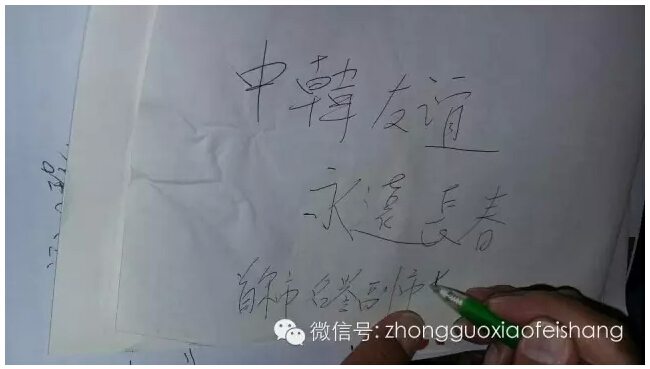 中韓友谊
永遠長春
首尔市 名誉副市
微信号: zhongguoxiaofeishang